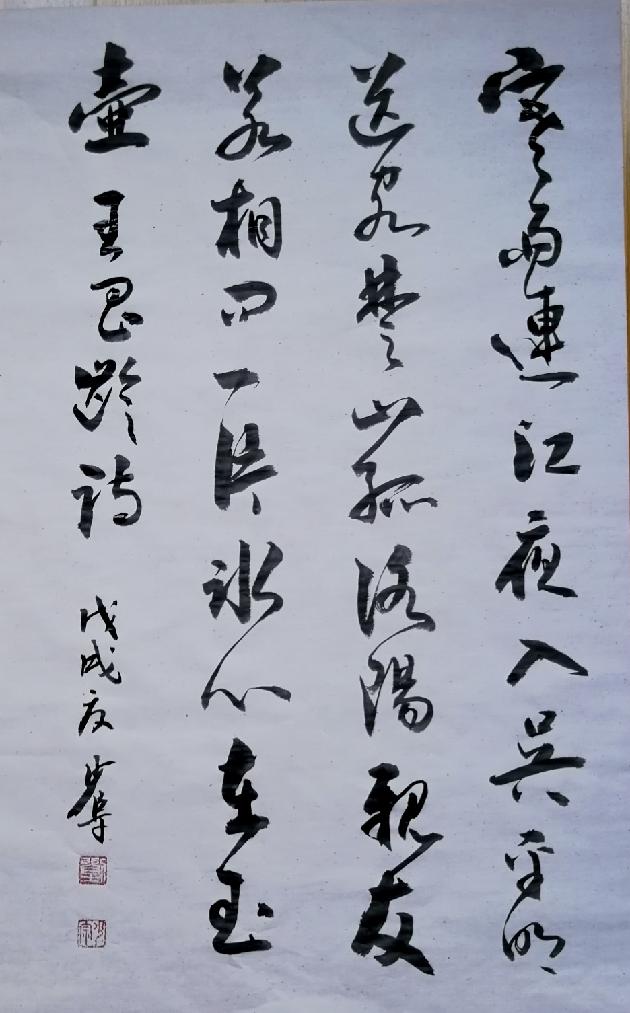 寒雨連江夜入吳平明
送客楚山孤洛陽親友
若相問一片冰心在玉
壺 王昌齡詩
戊戌夏